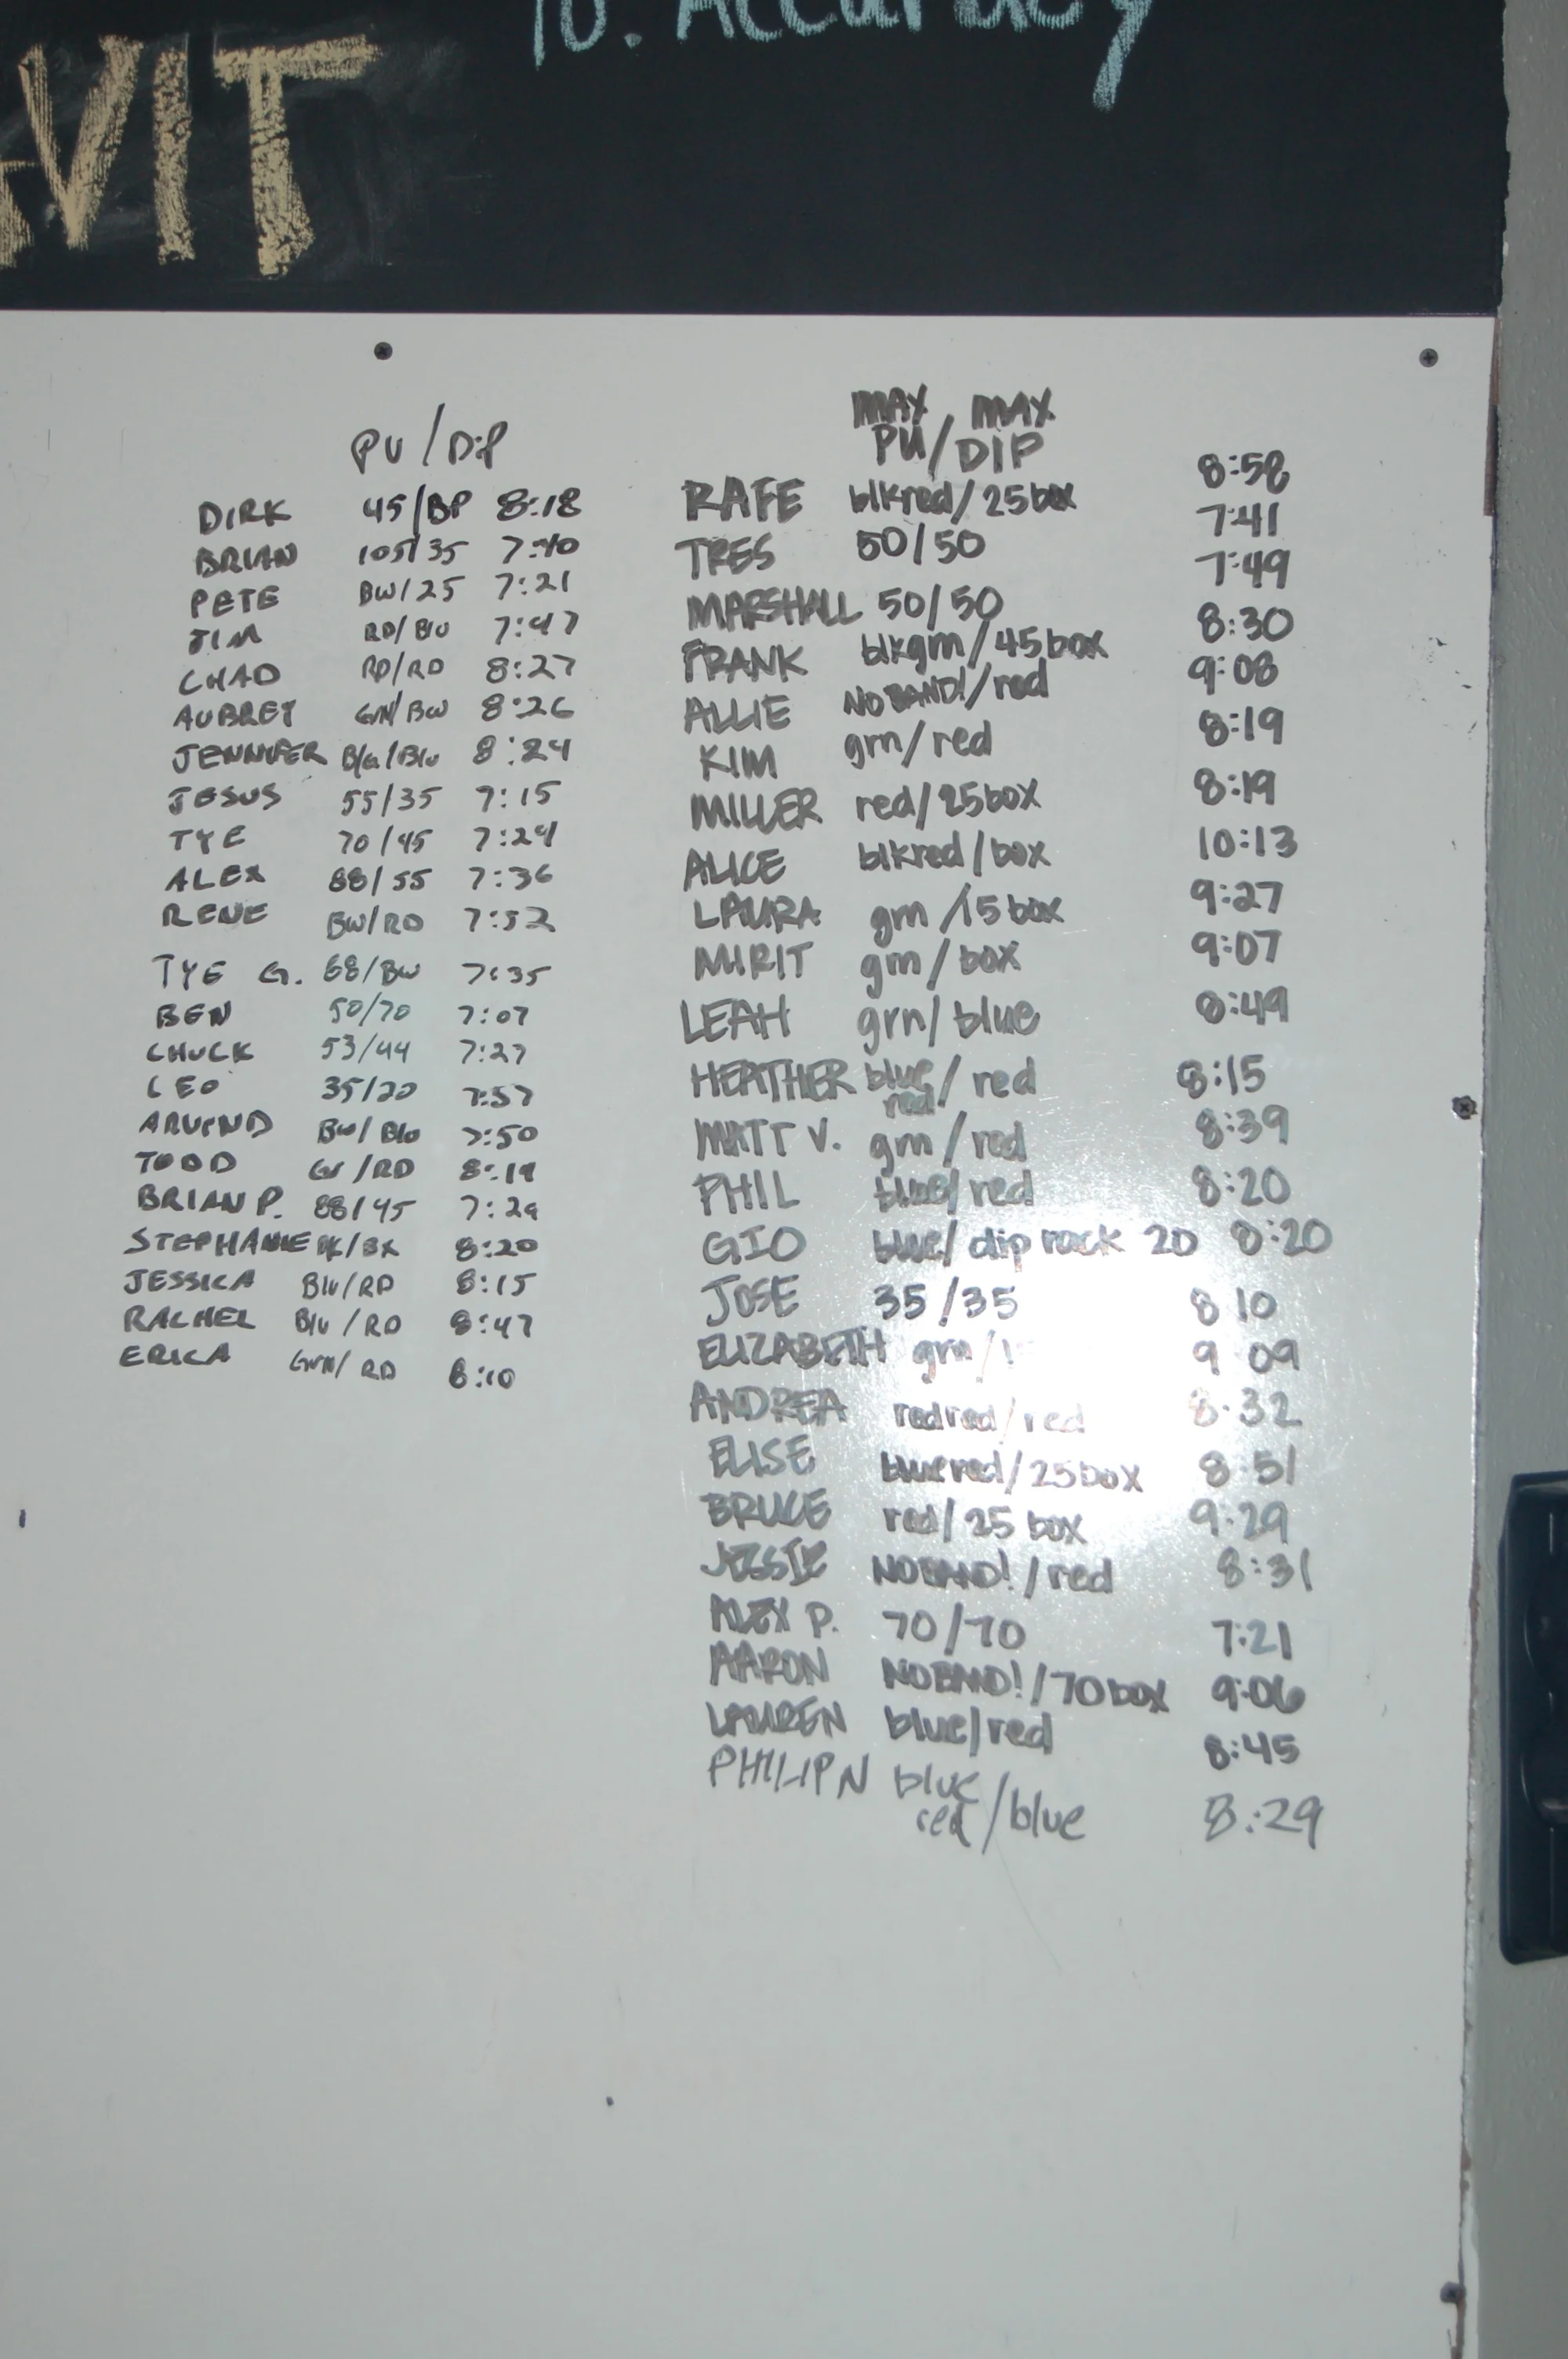 10. Accuracy
VIT
PU/DIP
DIRK 45/BP 8:18
BRIAN 105/35 7:40
PETE BW/25 7:21
JIM RD/Blu 7:47
CHAD RD/RD 8:27
AUBREY GRN/BW 8:26
JENNIFER Blu 8:24
JESUS 55/35 7:15
TYE 70/45 7:24
ALEX 88/55 7:36
RENE BW/RD 7:52
TYE G. 68/BW 7:35
BEN 50/70 7:07
CHUCK 53/44 7:27
LEO 35/20 7:57
ARVIND BW/Blu 7:50
TODD Gr/RD 8:19
BRIAN P. 88/45 7:29
STEPHANIE BK/BX 8:20
JESSICA Blu/RD 8:15
RACHEL Blu/RD 8:47
ERICA GRN/RD 8:10
MAX MAX
PU/DIP
RAFE blkred/25box 8:58
TRES 50/50 7:41
MARSHALL 50/50 7:49
FRANK blkgrn/45box 8:30
ALLIE NO BAND!/red 9:08
KIM grn/red 8:19
MILLER red/25box 8:19
ALICE blkred/box 10:13
LAURA grn/15box 9:27
MIRIT grn/box 9:07
LEAH grn/blue 8:49
HEATHER blue/red 8:15
red
MATT V. grn/red 8:39
PHIL blue/red 8:20
GIO blue/dip rack 20 8:20
JOSE 35/35 8 10
ELIZABETH grn/ 9 09
ANDREA redred/red 8:32
ELISE bluered/25box 8:51
BRUCE red/25 box 9:29
JESSIE NO BAND!/red 8:31
ALEX P. 70/70 7:21
AARON NO BAND!/70box 9:06
LAUREN blue/red 8:45
PHILIP N blue
red/blue 8:29